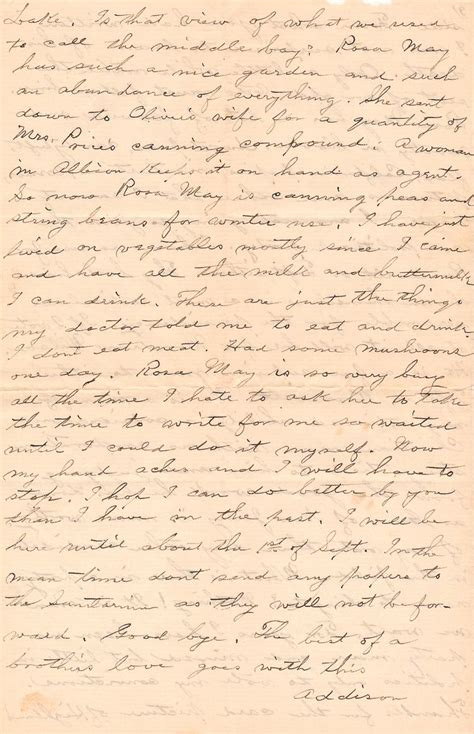 Lake. Is that view of what we used
to call the middle bay? Rosa May
has such a nice garden and such
an abundance of everything. She sent
down to Olive's wife for a quantity of
Mrs. Price's canning compound. A woman
in Albion keeps it on hand as agent.
So now Rosa May is canning peas and
string beans for winter use. I have just
lived on vegetables mostly since I came
and have all the milk and buttermilk
I can drink. These are just the things
my doctor told me to eat and drink.
I dont eat meat. Had some mushroons
one day. Rosa May is so very busy
all the time I hate to ask her to take
the time to write for me so waited
until I could do it myself. Now
my hand aches and I will have to
stop. I hop I can do better by you
than I have in the past. I will be
here until about the 1st of Sept. In the
mean time dont send any papers to
the Sanitarium as they will not be for-
ward. Good bye. The best of a
brothers love goes with this
Addison